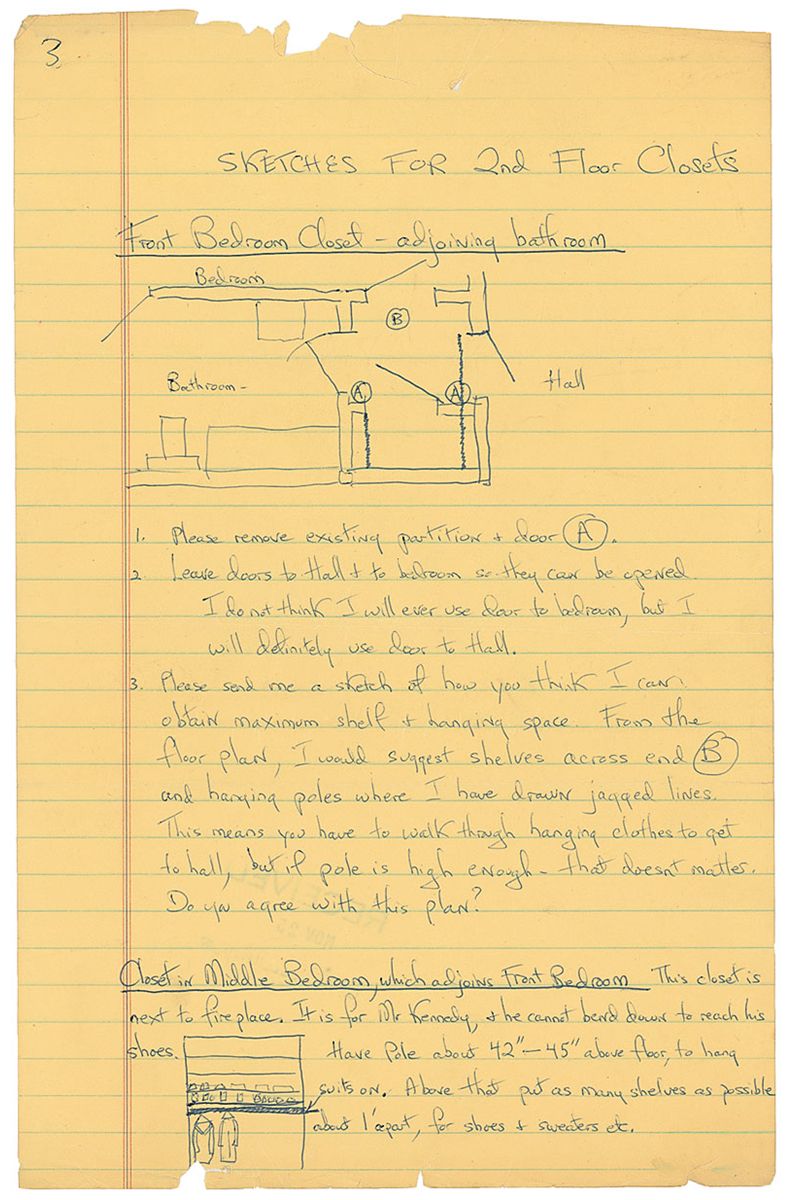 3
SKETCHES FOR 2nd Floor Closets
Front Bedroom Closet - adjoining bathroom
Bedroom
B
Bathroom -
A
A
Hall
1. Please remove existing partition + door A.
2. Leave doors to Hall + to bedroom so they can be opened.
I do not think I will ever use door to bedroom, but I
will definitely use door to Hall.
3. Please send me a sketch of how you think I can
obtain maximum shelf + hanging space. From the
floor plan, I would suggest shelves across end B
and hanging poles where I have drawn jagged lines.
This means you have to walk through hanging clothes to get
to hall, but if pole is high enough - that doesnt matter.
Do you agree with this plan?
Closet in Middle Bedroom, which adjoins Front Bedroom This closet is
next to fireplace. It is for Mr Kennedy, + he cannot bend down to reach his
shoes. Have Pole about 42" - 45" above floor, to hang
suits on. Above that put as many shelves as possible
about 1' apart, for shoes + sweaters etc.